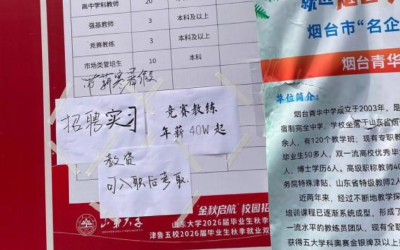 高中学科教师 20 本科及以上
强基教师 3 本科及以上
竞赛教练 5 本科及以上
市场类管培生 10 本科
寒暑假
招聘实习
竞赛教练
年薪40W起
教资
可入职后考取
山东大学
金秋启航 校园招
山东大学2026届毕业生秋季
津鲁五校2026届毕业生秋季就业双
烟台市“名企
烟台青华
单位简介:
烟台青华中学成立于2003年,是
宿制完全中学,学校坐落于山东省
右,有120个教学班,现有专职教
毕业生50多人,双一流高校优秀毕
人,博士学历6人。高级教师40
务院特殊津贴、山东省特级教师2人
近两年来,经过不断地教学探
培训课程已逐渐系统成型,形成了
一流水平的教练员团队,现有全
获得五大学科奥赛金银牌